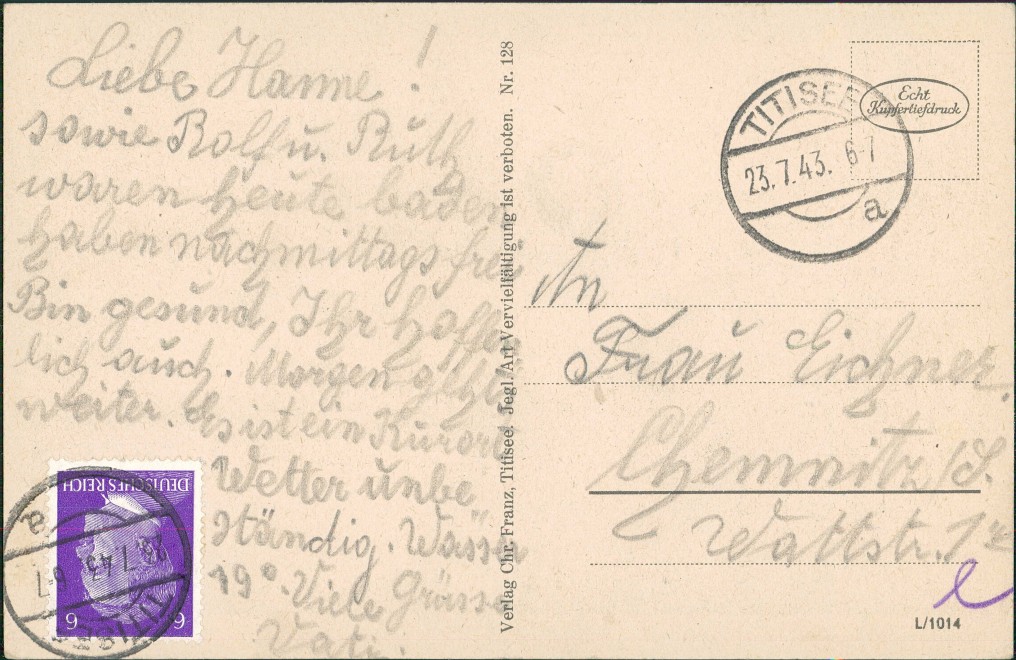 Liebe Hanne!
sowie Rolf u. Ruth
waren heute baden
haben nachmittags frei
Bin gesund, Ihr hoffent
lich auch. Morgen geht's
weiter. Es ist ein Kurort
Wetter unbe
ständig. Wasser
19° Viele Grüsse
Vati.
DEUTSCHES REICH
6 6
TITISEE
23.7.43. 6-7
a
Verlag Chr. Franz, Titisee. Jegl. Art Vervielfältigung ist verboten. Nr. 128
Echt
Kupfertiefdruck
TITISEE
23.7.43. 6-7
a
An
Frau Eichner
Chemnitz, S.
Wattstr.
L/1014